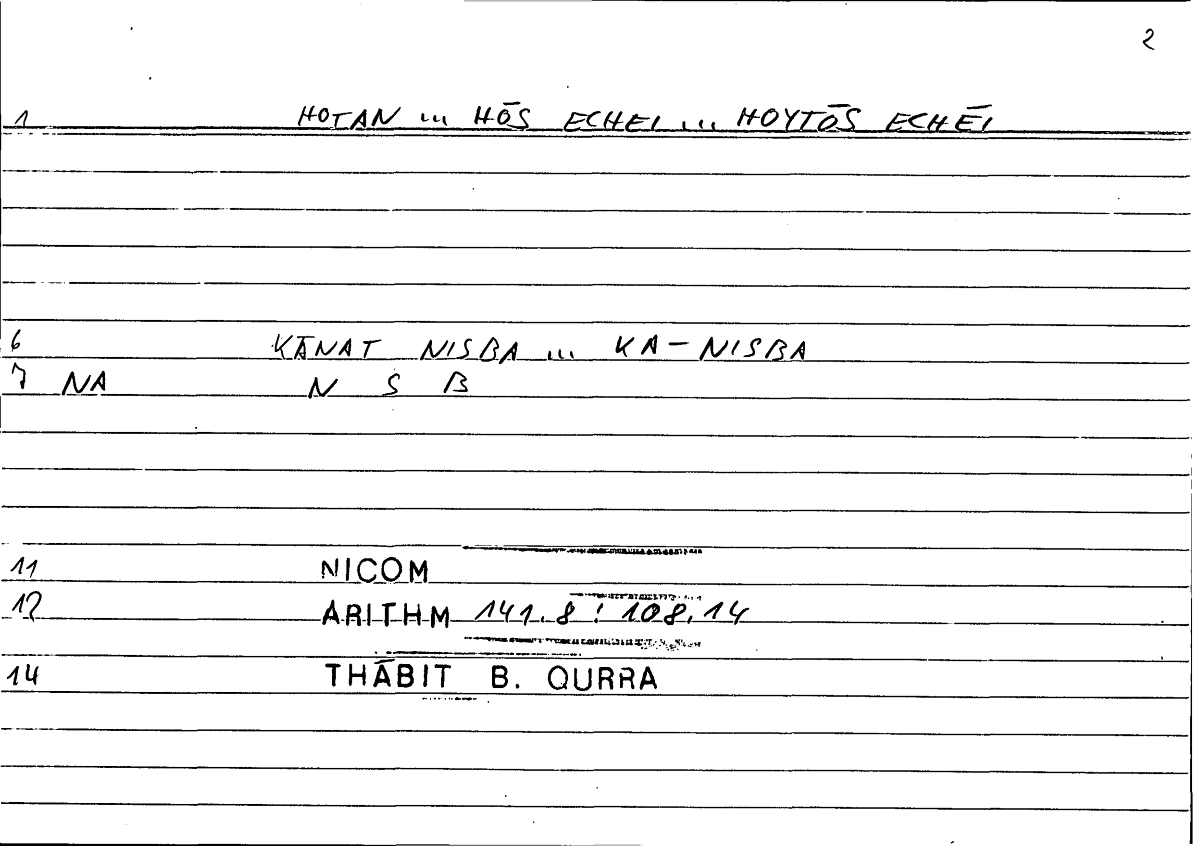 2
1 HOTAN ... HŌS ECHEI ... HOYTŌS ECHĒI
6 KĀNAT NISBA ... KA-NISBA
7 NA N S B
11 NICOM
12 ARITHM 141.8 : 108.14
14 THĀBIT B. QURRA